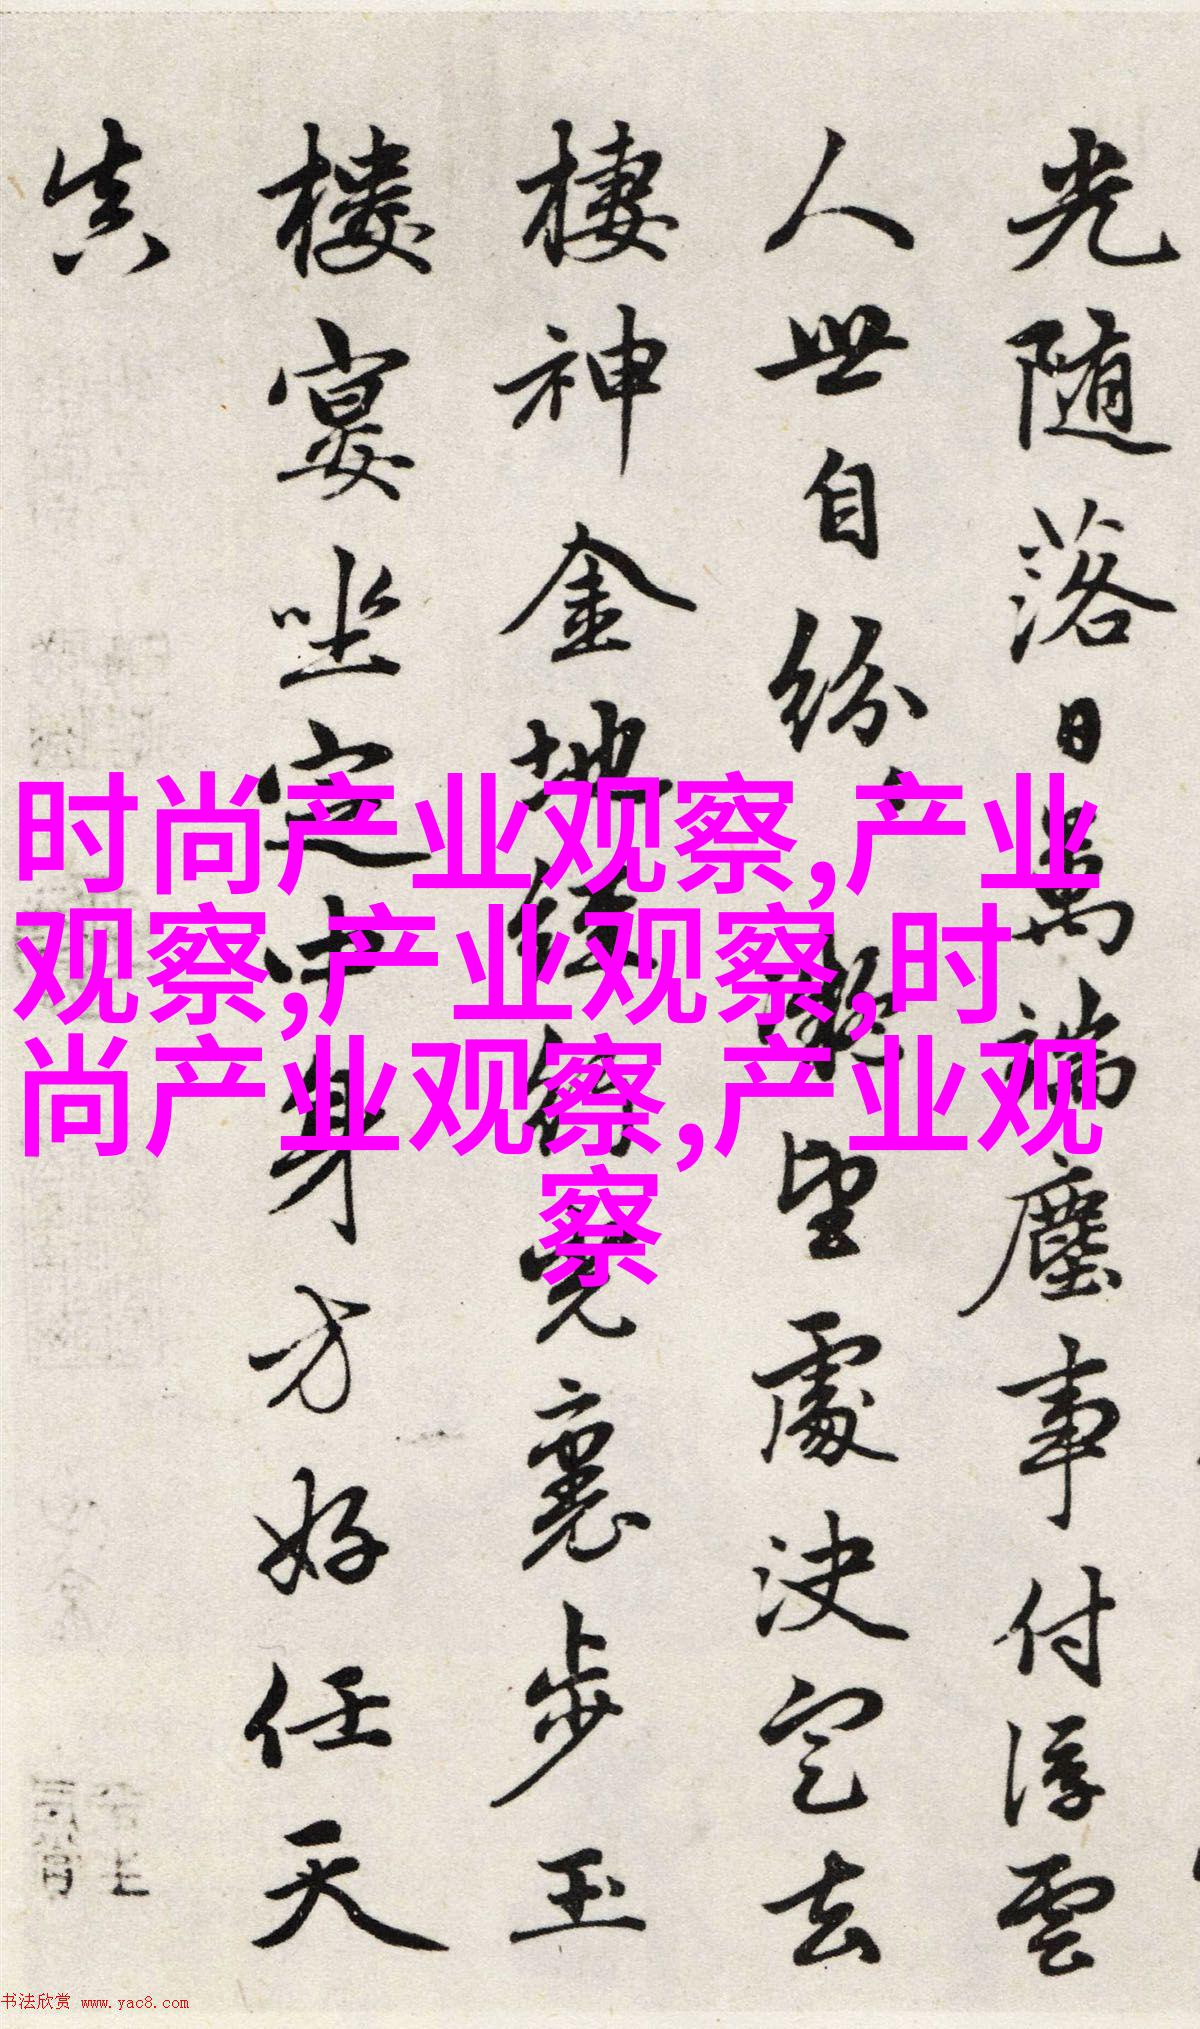 光随落日万端塵事付浮雲
人世自纷凝望處决定去
棲神金地经行覺裏步玉
楼宴坐定中身方好任天
真
时尚产业观察,产业
观察,产业观察,时
尚产业观察,产业观
察
书法欣赏 www.yac8.com